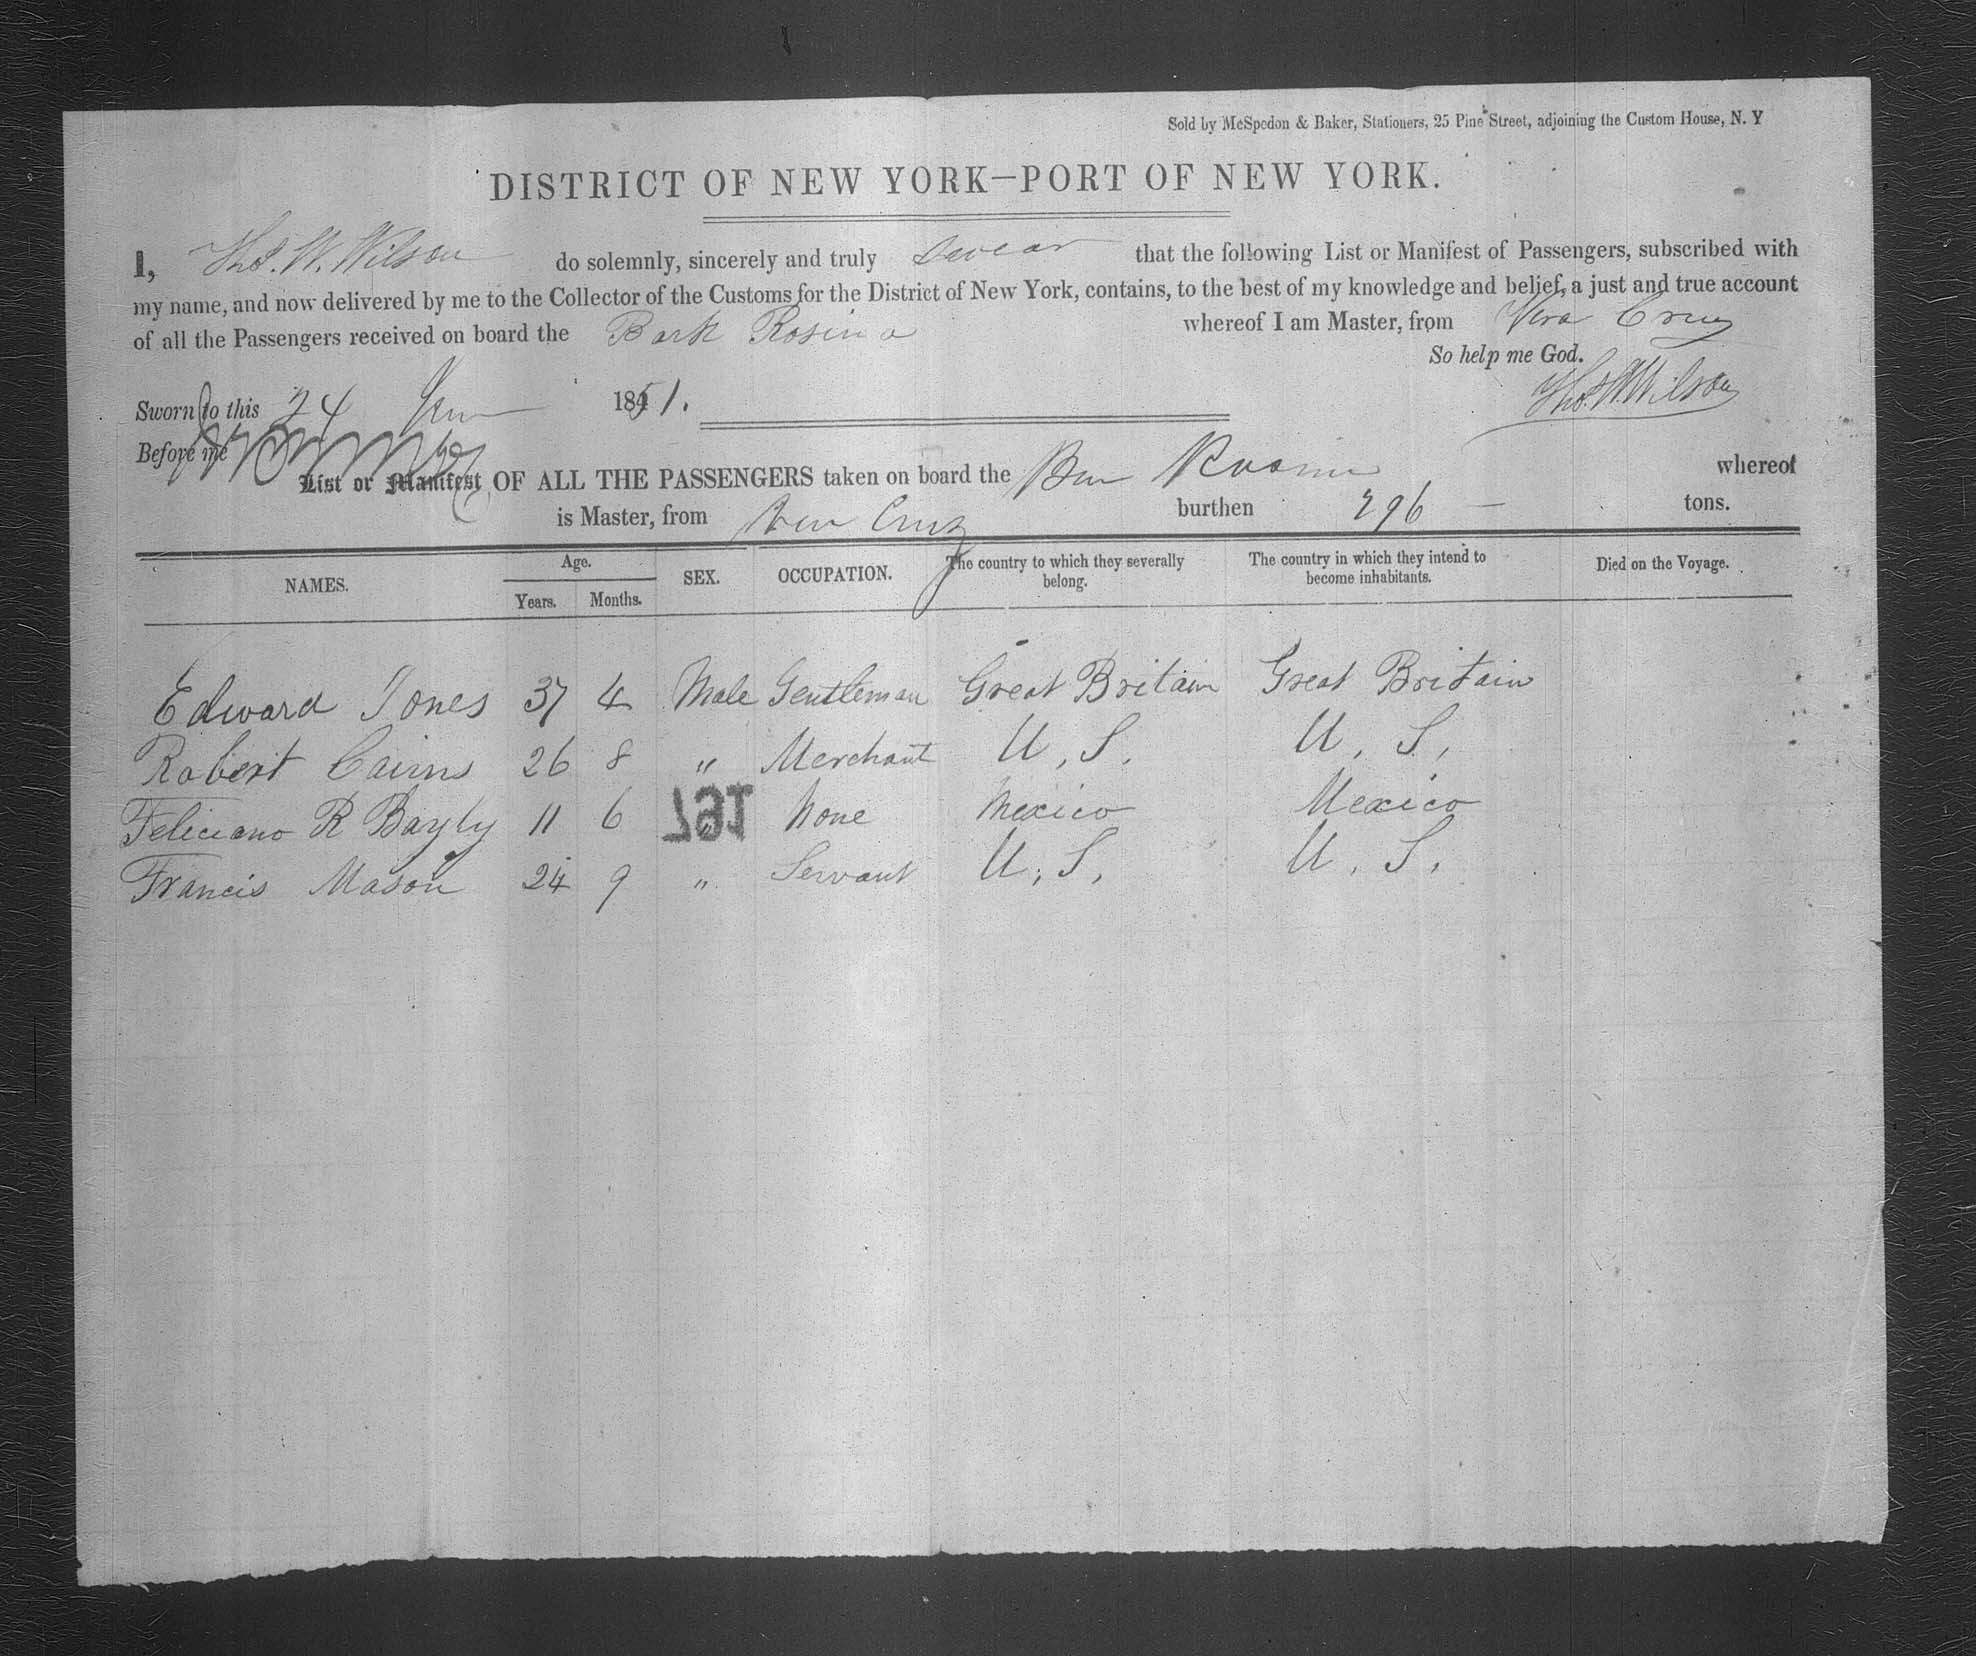 Sold by McSpedon & Baker, Stationers, 25 Pine Street, adjoining the Custom House, N. Y
DISTRICT OF NEW YORK—PORT OF NEW YORK.
I, Thos. W. Wilson do solemnly, sincerely and truly swear that the following List or Manifest of Passengers, subscribed with
my name, and now delivered by me to the Collector of the Customs for the District of New York, contains, to the best of my knowledge and belief, a just and true account
of all the Passengers received on board the Bark Rosina whereof I am Master, from Vera Cruz
So help me God.
Sworn to this 24 Jan 1851. Thos. W. Wilson
Before me
List or Manifest OF ALL THE PASSENGERS taken on board the Bark Rosina whereof
is Master, from Vera Cruz burthen 296 tons.
NAMES. Age. Years. Months. SEX. OCCUPATION. The country to which they severally belong. The country in which they intend to become inhabitants. Died on the Voyage.
Edward Jones 37 4 Male Gentleman Great Britain Great Britain
Robert Cairns 26 8 " Merchant U. S. U. S.
Feliciano R Bayly 11 6 " None Mexico Mexico
Francis Mason 24 9 " Servant U. S. U. S.